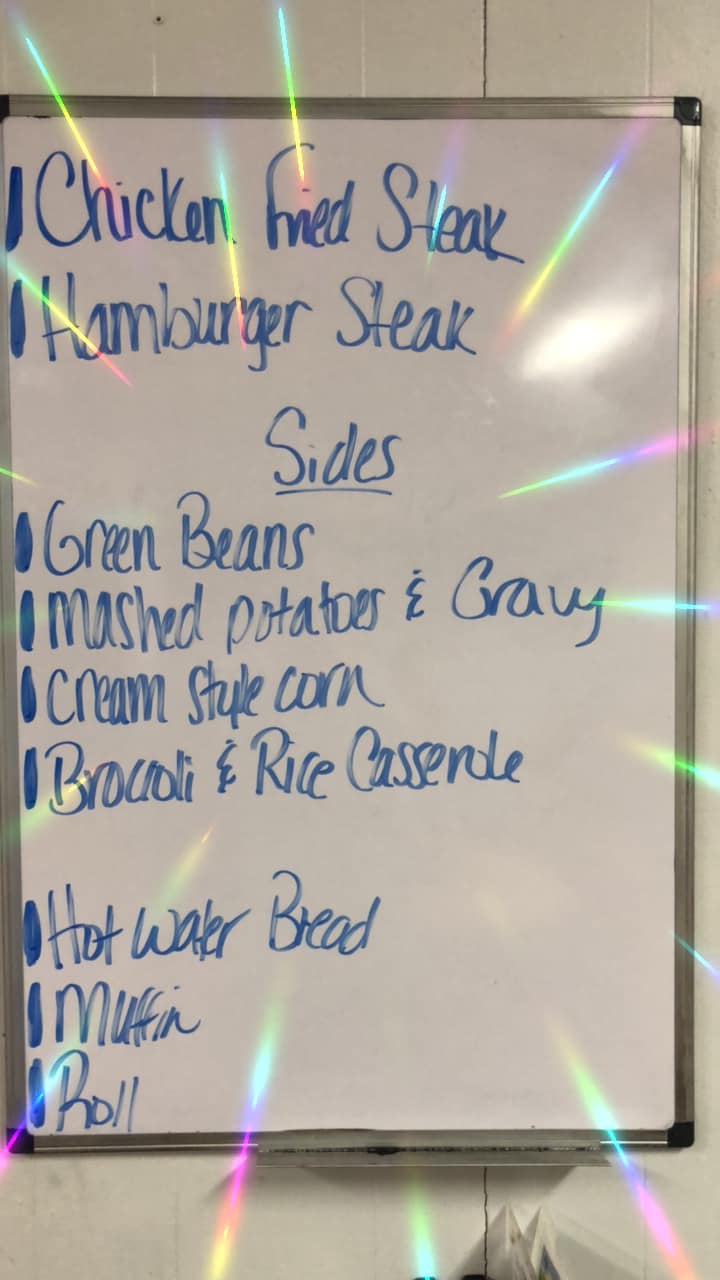 Chicken Fried Steak
Hamburger Steak
Sides
Green Beans
Mashed potatoes & Gravy
Cream Style corn
Broccoli & Rice Casserole
Hot Water Bread
Muffin
Roll